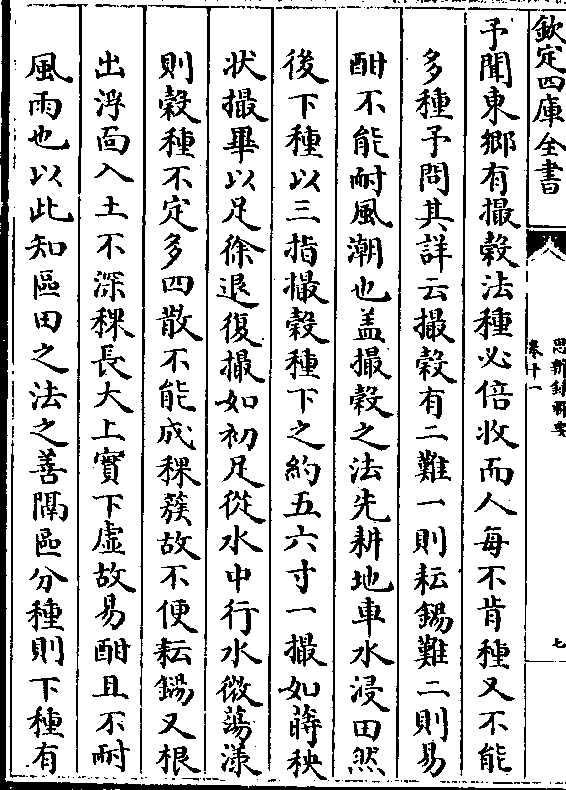 欽定四庫全書
思辨錄輯要
卷十一
七
予聞東鄉有撮穀法種必倍收而人每不肯種又不能
多種予問其詳云撮穀有二難一則耘鍚難二則易
酣不能耐風潮也盖撮穀之法先耕地車水浸田然
後下種以三指撮穀種下之約五六寸一撮如蒔秧
狀撮畢以足徐退復撮如初足從水中行水微蕩漾
則穀種不定多四散不能成稞蔟故不便耘鍚又根
出浮面入土不深稞長大上實下虛故易酣且不耐
風雨也以此知區田之法之善隔區分種則下種有